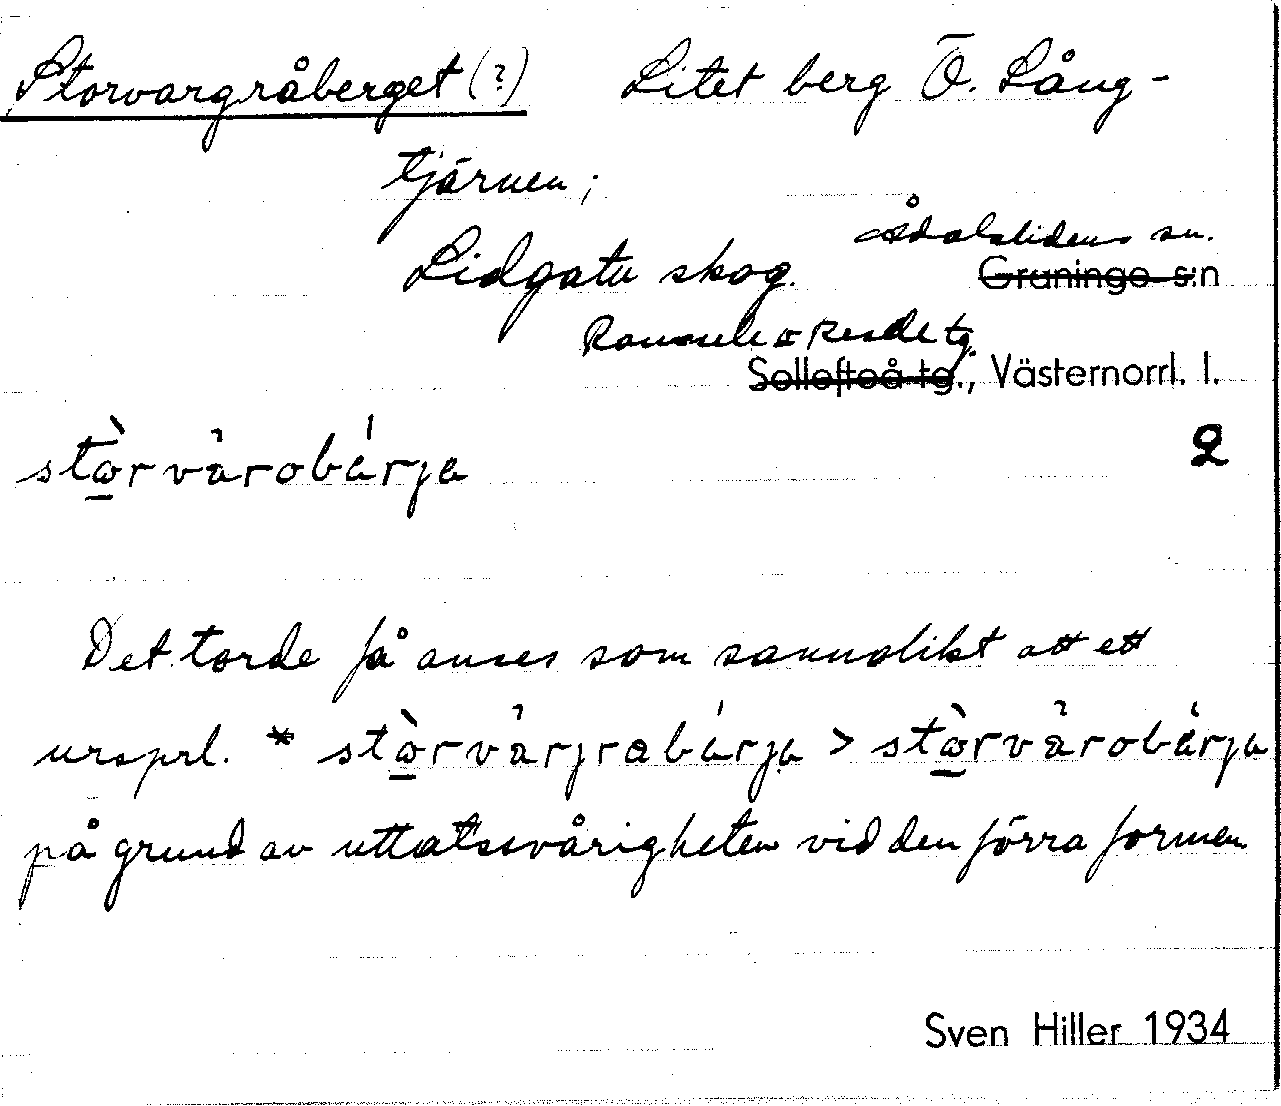 Storvargråberget (?) Litet berg Ö. Lång-
tjärnen;
Ådalslidens sn.
Lidgatu skog. Graninge s:n
Ramsele o Resele tg.
Sollefteå tg., Västernorrl. l.
stòrvàrobárja 2
Det torde få anses som sannolikt att ett
ursprl. * stòrvàrjrabárja > stòrvàrobárja
på grund av uttalssvårigheten vid den förra formen
Sven Hiller 1934